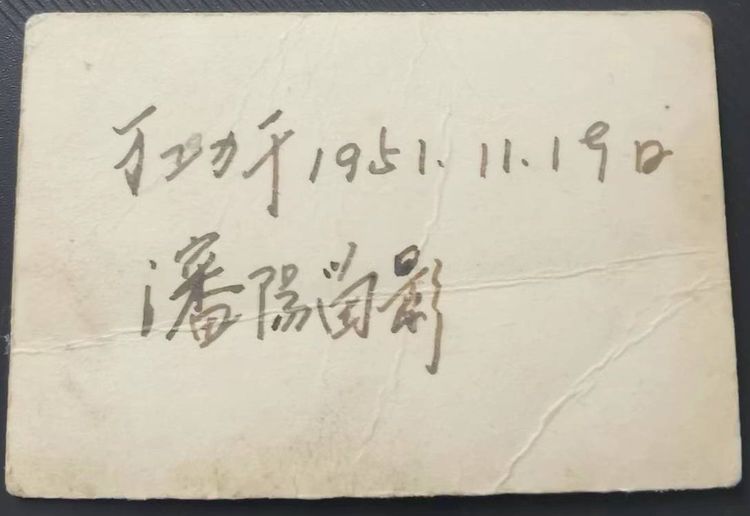 功于1951.11.19日
瀋陽留影